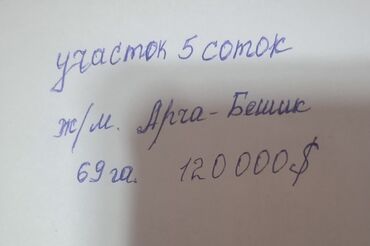 участок 5 соток
ж/м. Арча-Бешик
69га. 120000$